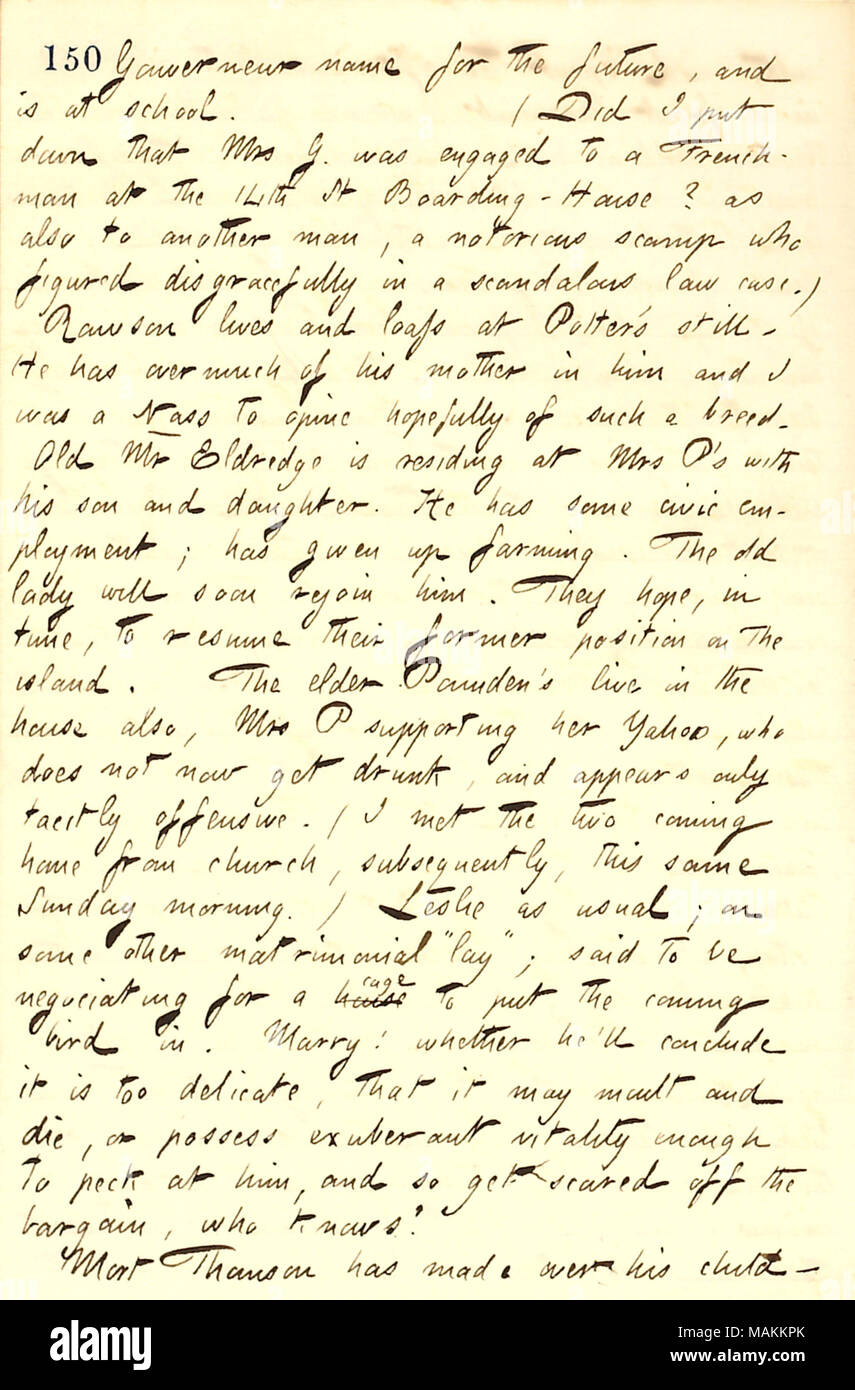 150 Gouverneur name for the future, and
is at school. (Did I put
down that Mrs G. was engaged to a French-
man at the 14th St Boarding-House? as
also to another man, a notorious scamp who
figured disgracefully in a scandalous law case.)
Rawson lives and loafs at Potter's still –
He has overmuch of his mother in him and I
was a Nass to opine hopefully of such a breed.
Old Mr Eldredge is residing at Mrs P's with
his son and daughter. He has some civic em-
ployment; has given up farming. The old
lady will soon rejoin him. They hope, in
time, to resume their former position on the
island. The elder Pounden's live in the
house also, Mrs P supporting her Yahoo, who
does not now get drunk, and appears only
tacitly offensive. (I met the two coming
home from church, subsequently, this same
Sunday morning.) Leslie as usual; on
some other matrimonial "lay"; said to be
negociating for a house cage to put the coming
bird in. Marry! whether he'll conclude
it is too delicate, that it may moult and
die, or possess exuberant vitality enough
to peck at him, and so get scared off the
bargain, who knows?
Mort Thomson has made over his child –
alamy
Image ID: MAKKPK
www.alamy.com